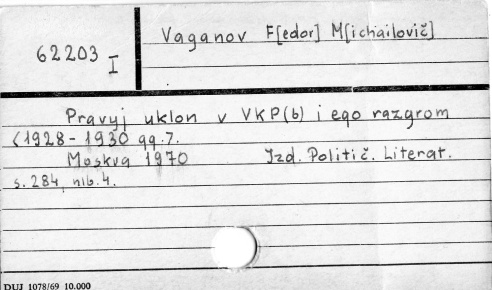 62203 I
Vaganov F[edor] M[ichailovič]
Pravyj uklon v VKP(b) i ego razgrom
(1928-1930 gg.).
Moskva 1970 Izd. Politič. Literat.
s. 284, nlb. 4.
DUJ 1078/69 10.000